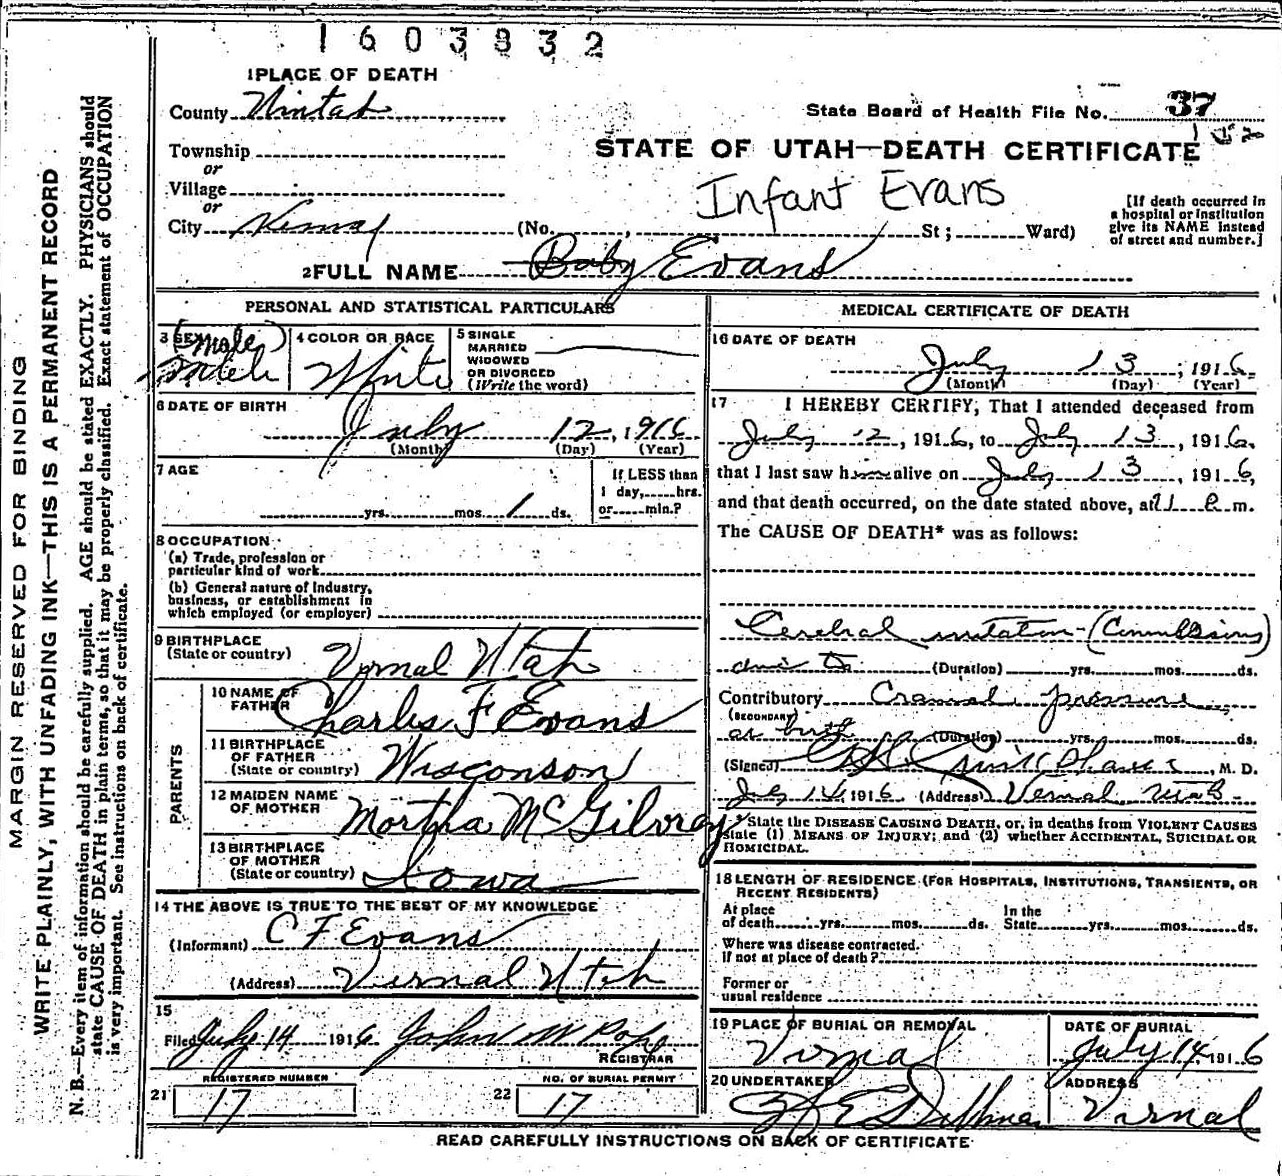 1603832
1 PLACE OF DEATH
County Uintah
State Board of Health File No. 37
152
Township
or
Village
or
City Vernal
STATE OF UTAH—DEATH CERTIFICATE
Infant Evans
(No. , St ; Ward)
[If death occurred in
a hospital or institution
give its NAME instead
of street and number.]
2 FULL NAME Baby Evans
PERSONAL AND STATISTICAL PARTICULARS
3 SEX (male)
Male
4 COLOR OR RACE
White
5 SINGLE
MARRIED
WIDOWED
OR DIVORCED
(Write the word)
6 DATE OF BIRTH
July 12, 1916
(Month) (Day) (Year)
7 AGE
yrs. mos. 1 ds.
If LESS than
1 day, hrs.
or min.?
8 OCCUPATION
(a) Trade, profession or
particular kind of work
(b) General nature of Industry,
business, or establishment in
which employed (or employer)
9 BIRTHPLACE
(State or country) Vernal Utah
PARENTS
10 NAME OF
FATHER Charles F Evans
11 BIRTHPLACE
OF FATHER
(State or country) Wisconson
12 MAIDEN NAME
OF MOTHER Mortha McGilvray
13 BIRTHPLACE
OF MOTHER
(State or country) Iowa
14 THE ABOVE IS TRUE TO THE BEST OF MY KNOWLEDGE
(Informant) C F Evans
(Address) Vernal Utah
15
Filed July 14 1916 John M Pope
REGISTRAR
REGISTERED NUMBER
21 17
NO. OF BURIAL PERMIT
22 17
MEDICAL CERTIFICATE OF DEATH
16 DATE OF DEATH
July 13, 1916.
(Month) (Day) (Year)
17 I HEREBY CERTIFY, That I attended deceased from
July 12, 1916, to July 13, 1916,
that I last saw him alive on July 13, 1916,
and that death occurred, on the date stated above, at 11 P m.
The CAUSE OF DEATH* was as follows:
Cerebral irritation (Convulsions)
due to (Duration) yrs. mos. ds.
Contributory Cranial pressure
(SECONDARY)
at birth (Duration) yrs. mos. ds.
(Signed) M. D.
July 14, 1916 (Address) Vernal Utah
* State the DISEASE CAUSING DEATH, or, in deaths from VIOLENT CAUSES
state (1) MEANS OF INJURY; and (2) whether ACCIDENTAL, SUICIDAL OR
HOMICIDAL.
18 LENGTH OF RESIDENCE (FOR HOSPITALS, INSTITUTIONS, TRANSIENTS, OR
RECENT RESIDENTS)
At place
of death yrs. mos. ds.
In the
State yrs. mos. ds.
Where was disease contracted.
if not at place of death?
Former or
usual residence
19 PLACE OF BURIAL OR REMOVAL
Vernal
DATE OF BURIAL
July 14 1916
20 UNDERTAKER
ADDRESS
Vernal
READ CAREFULLY INSTRUCTIONS ON BACK OF CERTIFICATE
MARGIN RESERVED FOR BINDING
WRITE PLAINLY, WITH UNFADING INK—THIS IS A PERMANENT RECORD
N. B.—Every item of information should be carefully supplied. AGE should be stated EXACTLY. PHYSICIANS should
state CAUSE OF DEATH in plain terms, so that it may be properly classified. Exact statement of OCCUPATION
is very important. See instructions on back of certificate.